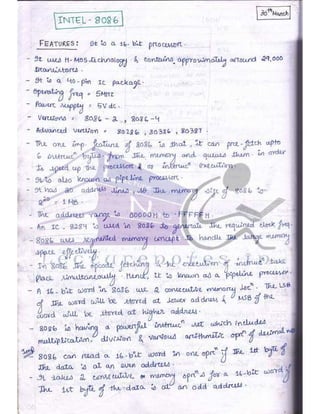 30th March
INTEL - 8086
FEATURES: It is a 16-bit processor.
- It uses H-MOS technology & contains approximately around 29,000
transistors.
- It is a 40-pin IC package.
- Operating freq = 5MHz
- Power supply = 5V dc.
- Versions = 8086-2, 8086-4
- Advanced version = 80286, 80386, 80387
- The one imp feature of 8086 is that, it can pre-fetch upto
6 instruc^n bytes from the memory and queues them in order
to speed up the processor & or instruc^n execution.
- It is also known as pipeline processor.
- It has 20 address lines, so the memory size of 8086 is
= 1MB.
- The address range is 00000H to FFFFFH.
- An IC - 8284 is used in 8086 to generate the required clock freq.
- 8086 uses segmented memory concept to handle the large memory
space effectively.
- In 8086 the fetching & execution of instruc^n take
place simultaneously. Hence, it is known as a pipeline processor.
- A 16-bit word in 8086 use 2 consecutive memory loc^n. The LSB
of the word will be stored at lower address & MSB of the
word will be stored at higher address.
- 8086 is having a powerful instruc^n set which includes
multiplication, division & various arithmetic opr^n of decimal no
8086 can read a 16-bit word in one opr^n if the 1st byte of
the data is at an even address.
- It takes 2 consecutive memory opr^n s for a 16-bit word if
the 1st byte of the data is at an odd address.